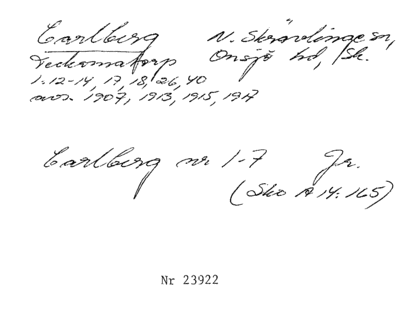 Carlberg N. Skrävlinge sn,
Teckomatorp Onsjö hd, Sk.
1:12-14, 17, 18, 26, 40
avs. 1907, 1913, 1915, 1917
Carlberg nr 1-7 Jr.
(Sko A 14:165)
Nr 23922